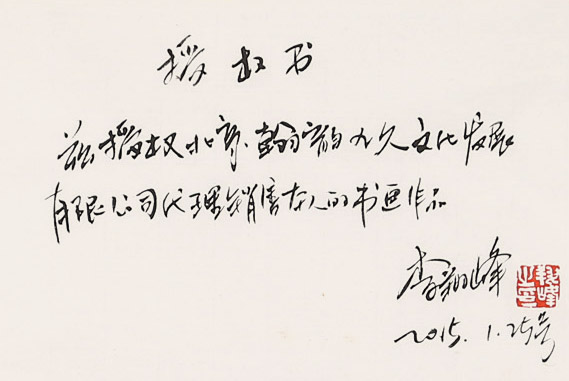 授权书
兹授权北京翰韵九久文化发展
有限公司代理销售本人的书画作品
李翔峰
2015.1.25号